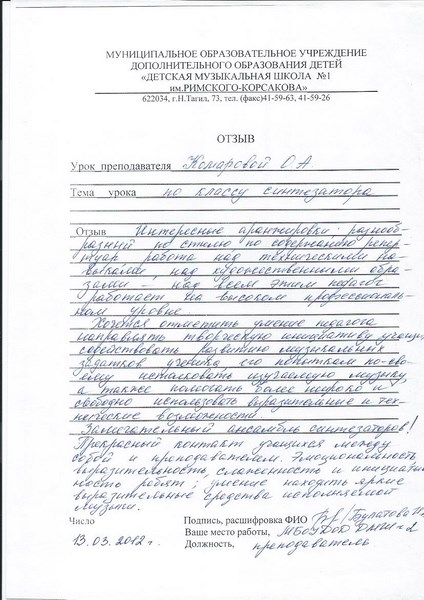 МУНИЦИПАЛЬНОЕ ОБРАЗОВАТЕЛЬНОЕ УЧРЕЖДЕНИЕ
ДОПОЛНИТЕЛЬНОГО ОБРАЗОВАНИЯ ДЕТЕЙ
«ДЕТСКАЯ МУЗЫКАЛЬНАЯ ШКОЛА №1
им.РИМСКОГО-КОРСАКОВА»
622034, г.Н.Тагил, 73, тел. (факс)41-59-63, 41-59-26
ОТЗЫВ
Урок преподавателя Комаровой О.А
Тема урока по классу синтезатора
Отзыв Интересные аранжировки; разнооб-
разный по стилю, по содержанию репер-
туар, работа над техническими на-
выками, над художественными обра-
зами – над всем этим педагог
работает на высоком профессиональ-
ном уровне.
Хочется отметить умение педагога
направлять творческую инициативу учащихся,
содействовать развитию музыкальных
задатков ученика, его попыткам по-сво-
ему истолковать изучаемую музыку,
а также помогать более широко и
свободно использовать выразительные и тех-
нические возможности.
Замечательный ансамбль синтезаторов!
Прекрасный контакт учащихся между
собой и преподавателем. Эмоциональность,
выразительность, слаженность и инициатив-
ность ребят; умение находить яркие
выразительные средства исполняемой
музыки.
Число Подпись, расшифровка ФИО /Булатова
13.03.2012 г. Ваше место работы, МБОУДОД ДМШ №2
Должность, преподаватель